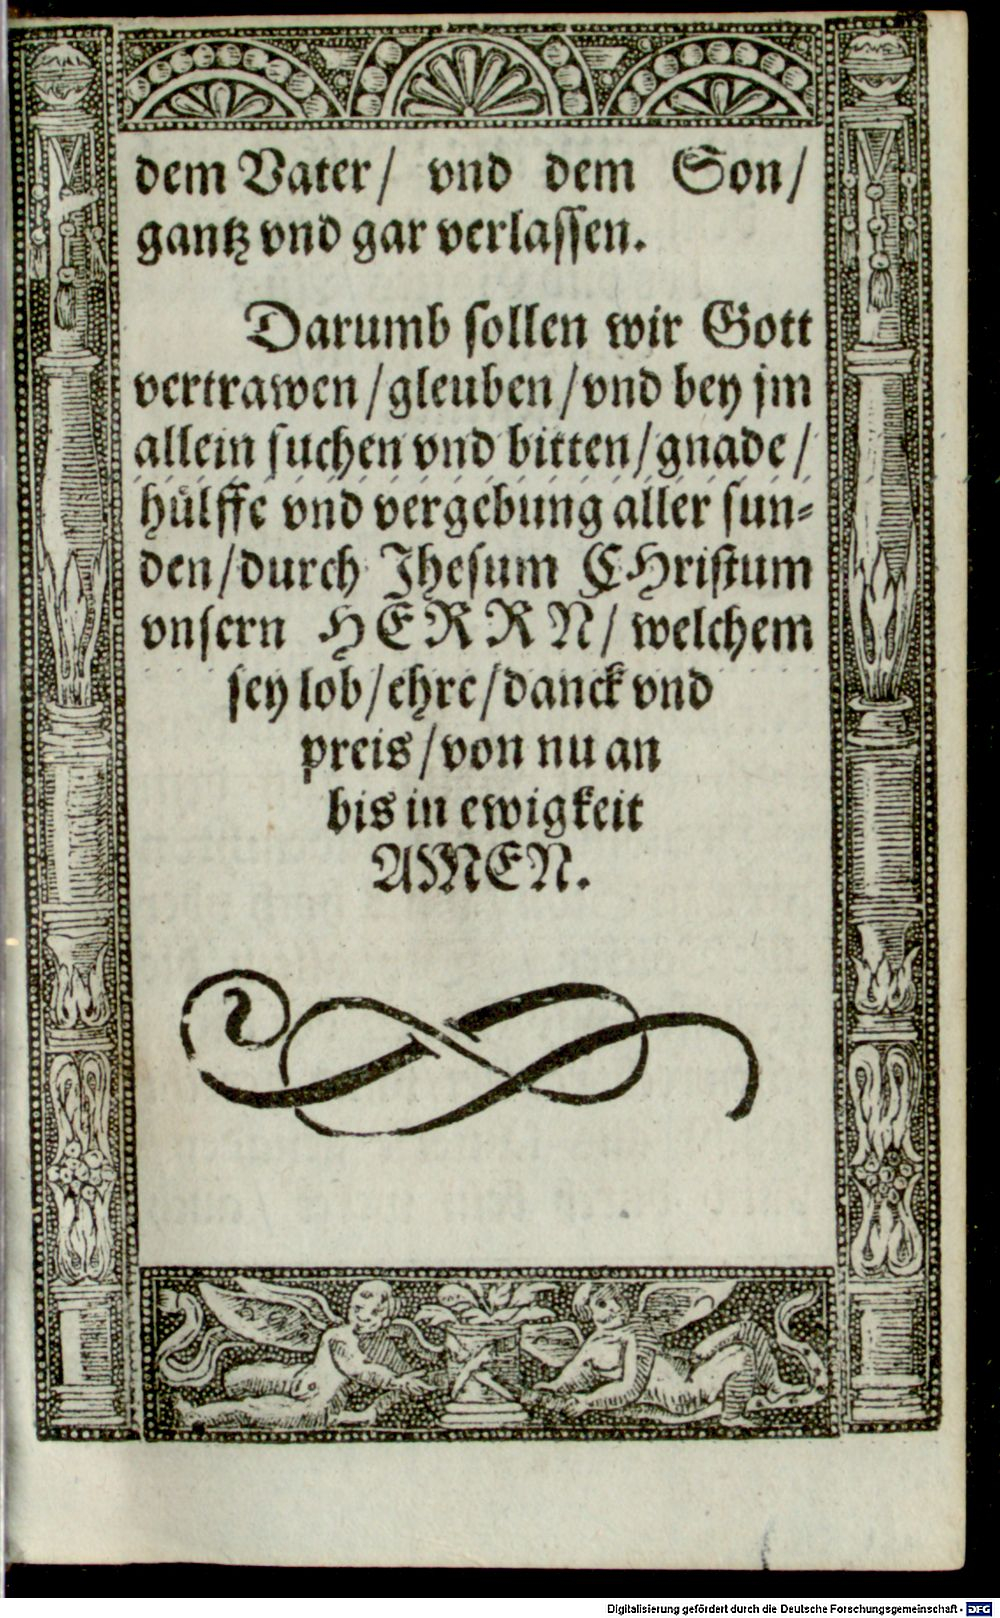 dem Vater/ vnd dem Son/
gantz vnd gar verlassen.
Darumb sollen wir Gott
vertrawen/gleuben/vnd bey jm
allein suchen vnd bitten/gnade/
hülffe vnd vergebung aller sun⸗
den/durch Jhesum CHristum
vnsern HERRN/ welchem
sey lob/ehre/danck vnd
preis/von nu an
bis in ewigkeit
AMEN.
Digitalisierung gefördert durch die Deutsche Forschungsgemeinschaft - DFG